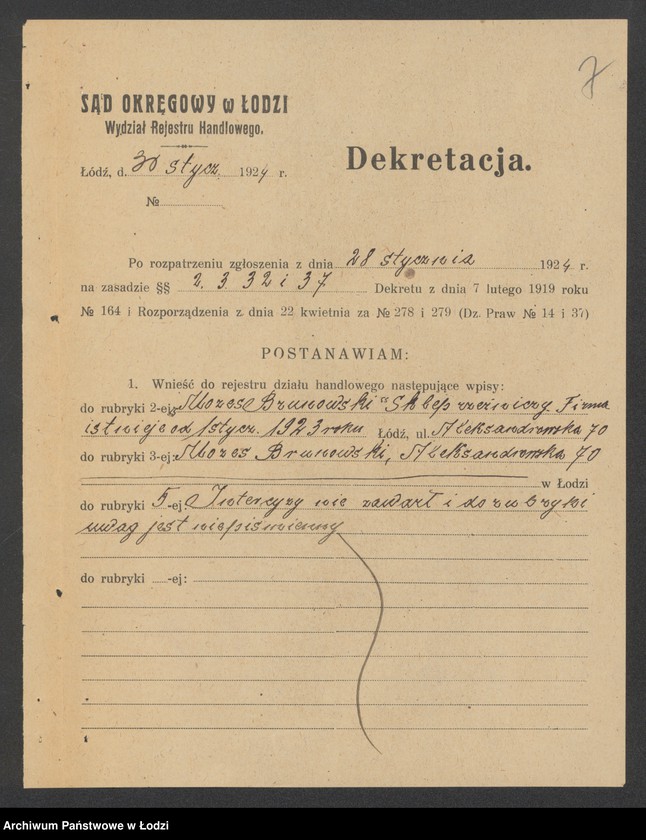 7
SĄD OKRĘGOWY w ŁODZI
Wydział Rejestru Handlowego.
Łódź, d. 30 stycz. 1924 r.
№
Dekretacja.
Po rozpatrzeniu zgłoszenia z dnia 28 stycznia 1924 r.
na zasadzie §§ 2. 3 32 i 37 Dekretu z dnia 7 lutego 1919 roku
№ 164 i Rozporządzenia z dnia 22 kwietnia za № 278 i 279 (Dz. Praw № 14 i 37)
POSTANAWIAM:
1. Wnieść do rejestru działu handlowego następujące wpisy:
do rubryki 2-ej: „Mozes Brunowski" Sklep rzeźniczy. Firma
istnieje od 1 stycz. 1923 roku Łódź, ul. Aleksandrowska 70
do rubryki 3-ej: Mozes Brunowski, Aleksandrowska 70
w Łodzi
do rubryki 5-ej Intercyzy nie zawarł i do rubryki
uwag jest niepiśmienny
do rubryki -ej:
Archiwum Państwowe w Łodzi